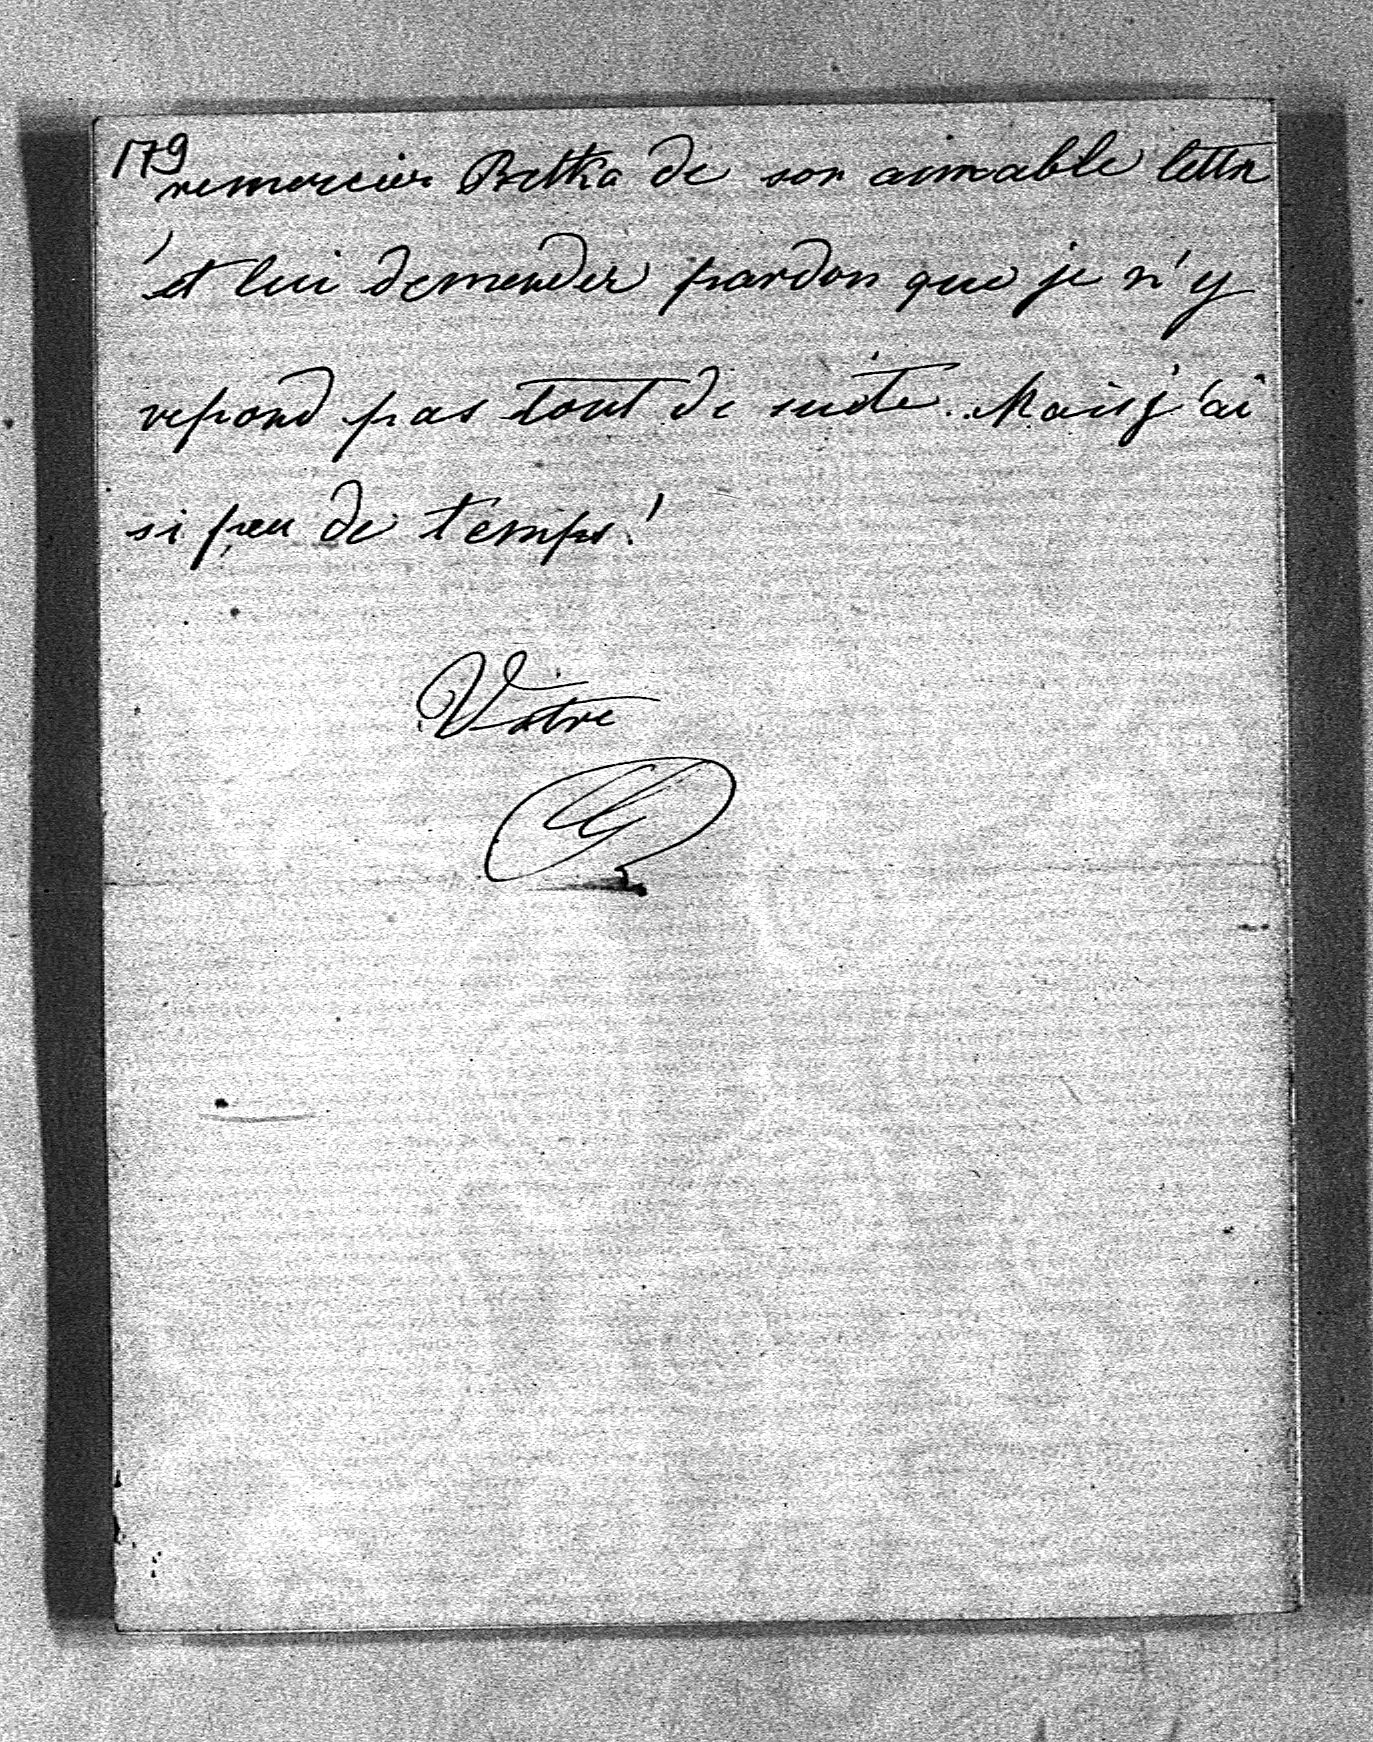 179
remercier Betka de son aimable lettre
et lui demender pardon que je n'y
repond pas tout de suite. Mais j'ai
si peu de temps!
Vôtre